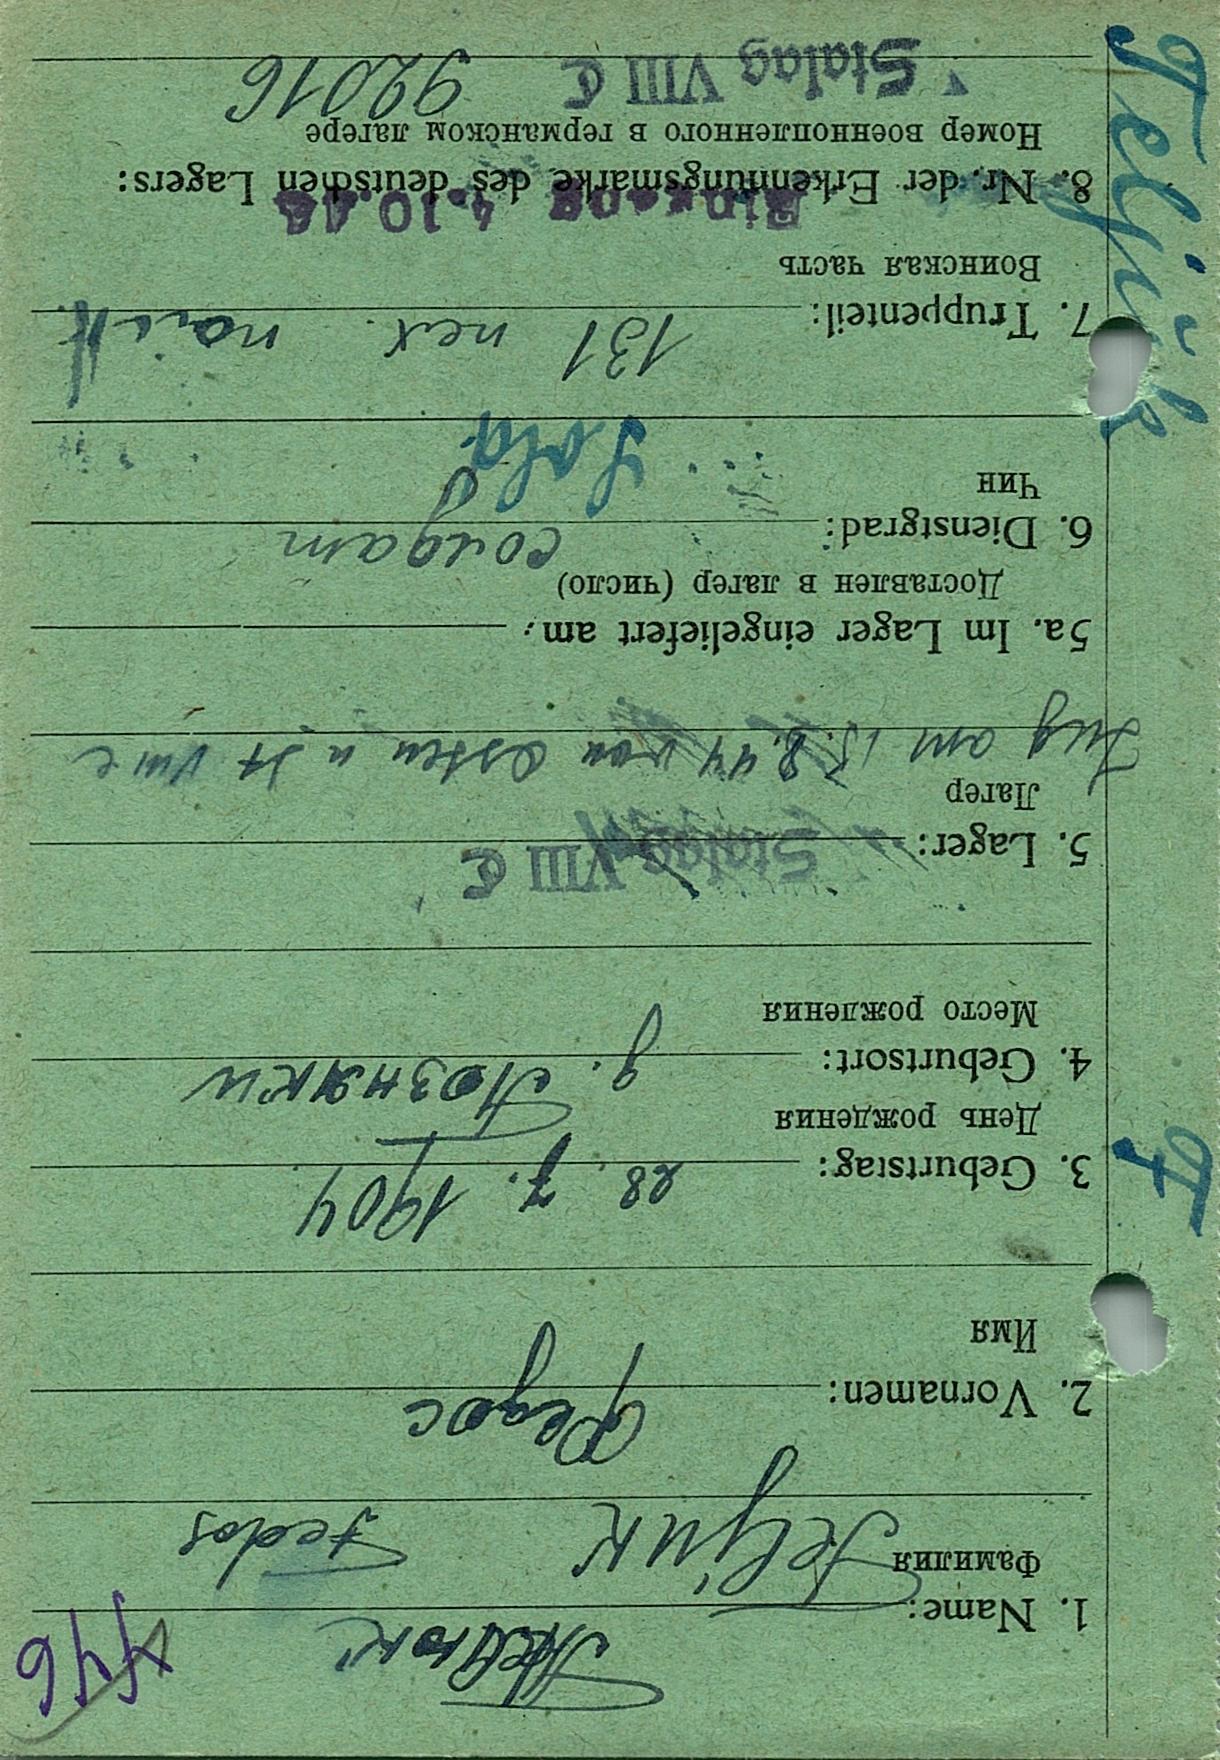 446
Телюк
1. Name:
Фамилия
Teljuk Fedos
Федос
2. Vornamen:
Имя
T
3. Geburtstag: 28. 7. 1904.
День рождения
4. Geburtsort: д. Позняки
Место рождения
5. Lager: Stalag VIII C
Лагер
Zug am 15.8.44 von Osten n St VIII C
5a. Im Lager eingeliefert am:
Доставлен в лагер (число)
6. Dienstgrad: солдат
Чин
Sold
7. Truppenteil: 131 пех.
Воинская часть
Eingang 4.10.44
8. Nr. der Erkennungsmarke des deutschen Lagers:
Номер военнопленного в германском лагере
Stalag VIII C 92016
Teljuk